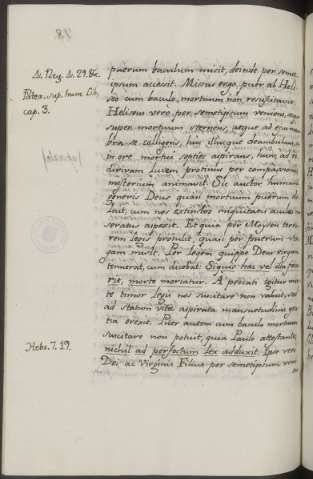 puerum baculum misit, deinde per semet
ipsum accessit. Missus ergo puer ab Heli-
seo cum baculo, mortuum non resuscitavit.
Heliseus vero per semetipsum veniens, seq
super mortuum sternens, atque ad ejus mem
bra se colligens, huc illucque deambulans,
in ore mortui septies aspirans, hunc ad re
divivam lucem protinus per compassionis
ministerium animavit. Sic auctor humani
generis Deus quasi mortuum puerum do-
luit, cum nos extinctos iniquitatis aculeo mi
seratus aspexit. Et quia per Moysen terro-
rem legis protulit, quasi per puerum vir-
gam misit. Per legem quippe Deus virgam
tenuerat, cum dicebat: Siquis hæc vel illa fece
rit, morte moriatur. A peccati igitur mor
te timor legis nos suscitare non valuit, sed
ad statum vitæ aspirata mansuetudinis gra
tia erexit. Puer autem cum baculo mortuum
suscitare non potuit, quia Paulo attestante,
nichil ad perfectum lex adduxit. Ipse vero
Dei ac Virginis Filius per semetipsum
cap. 3.
Hebr. 7, 19.